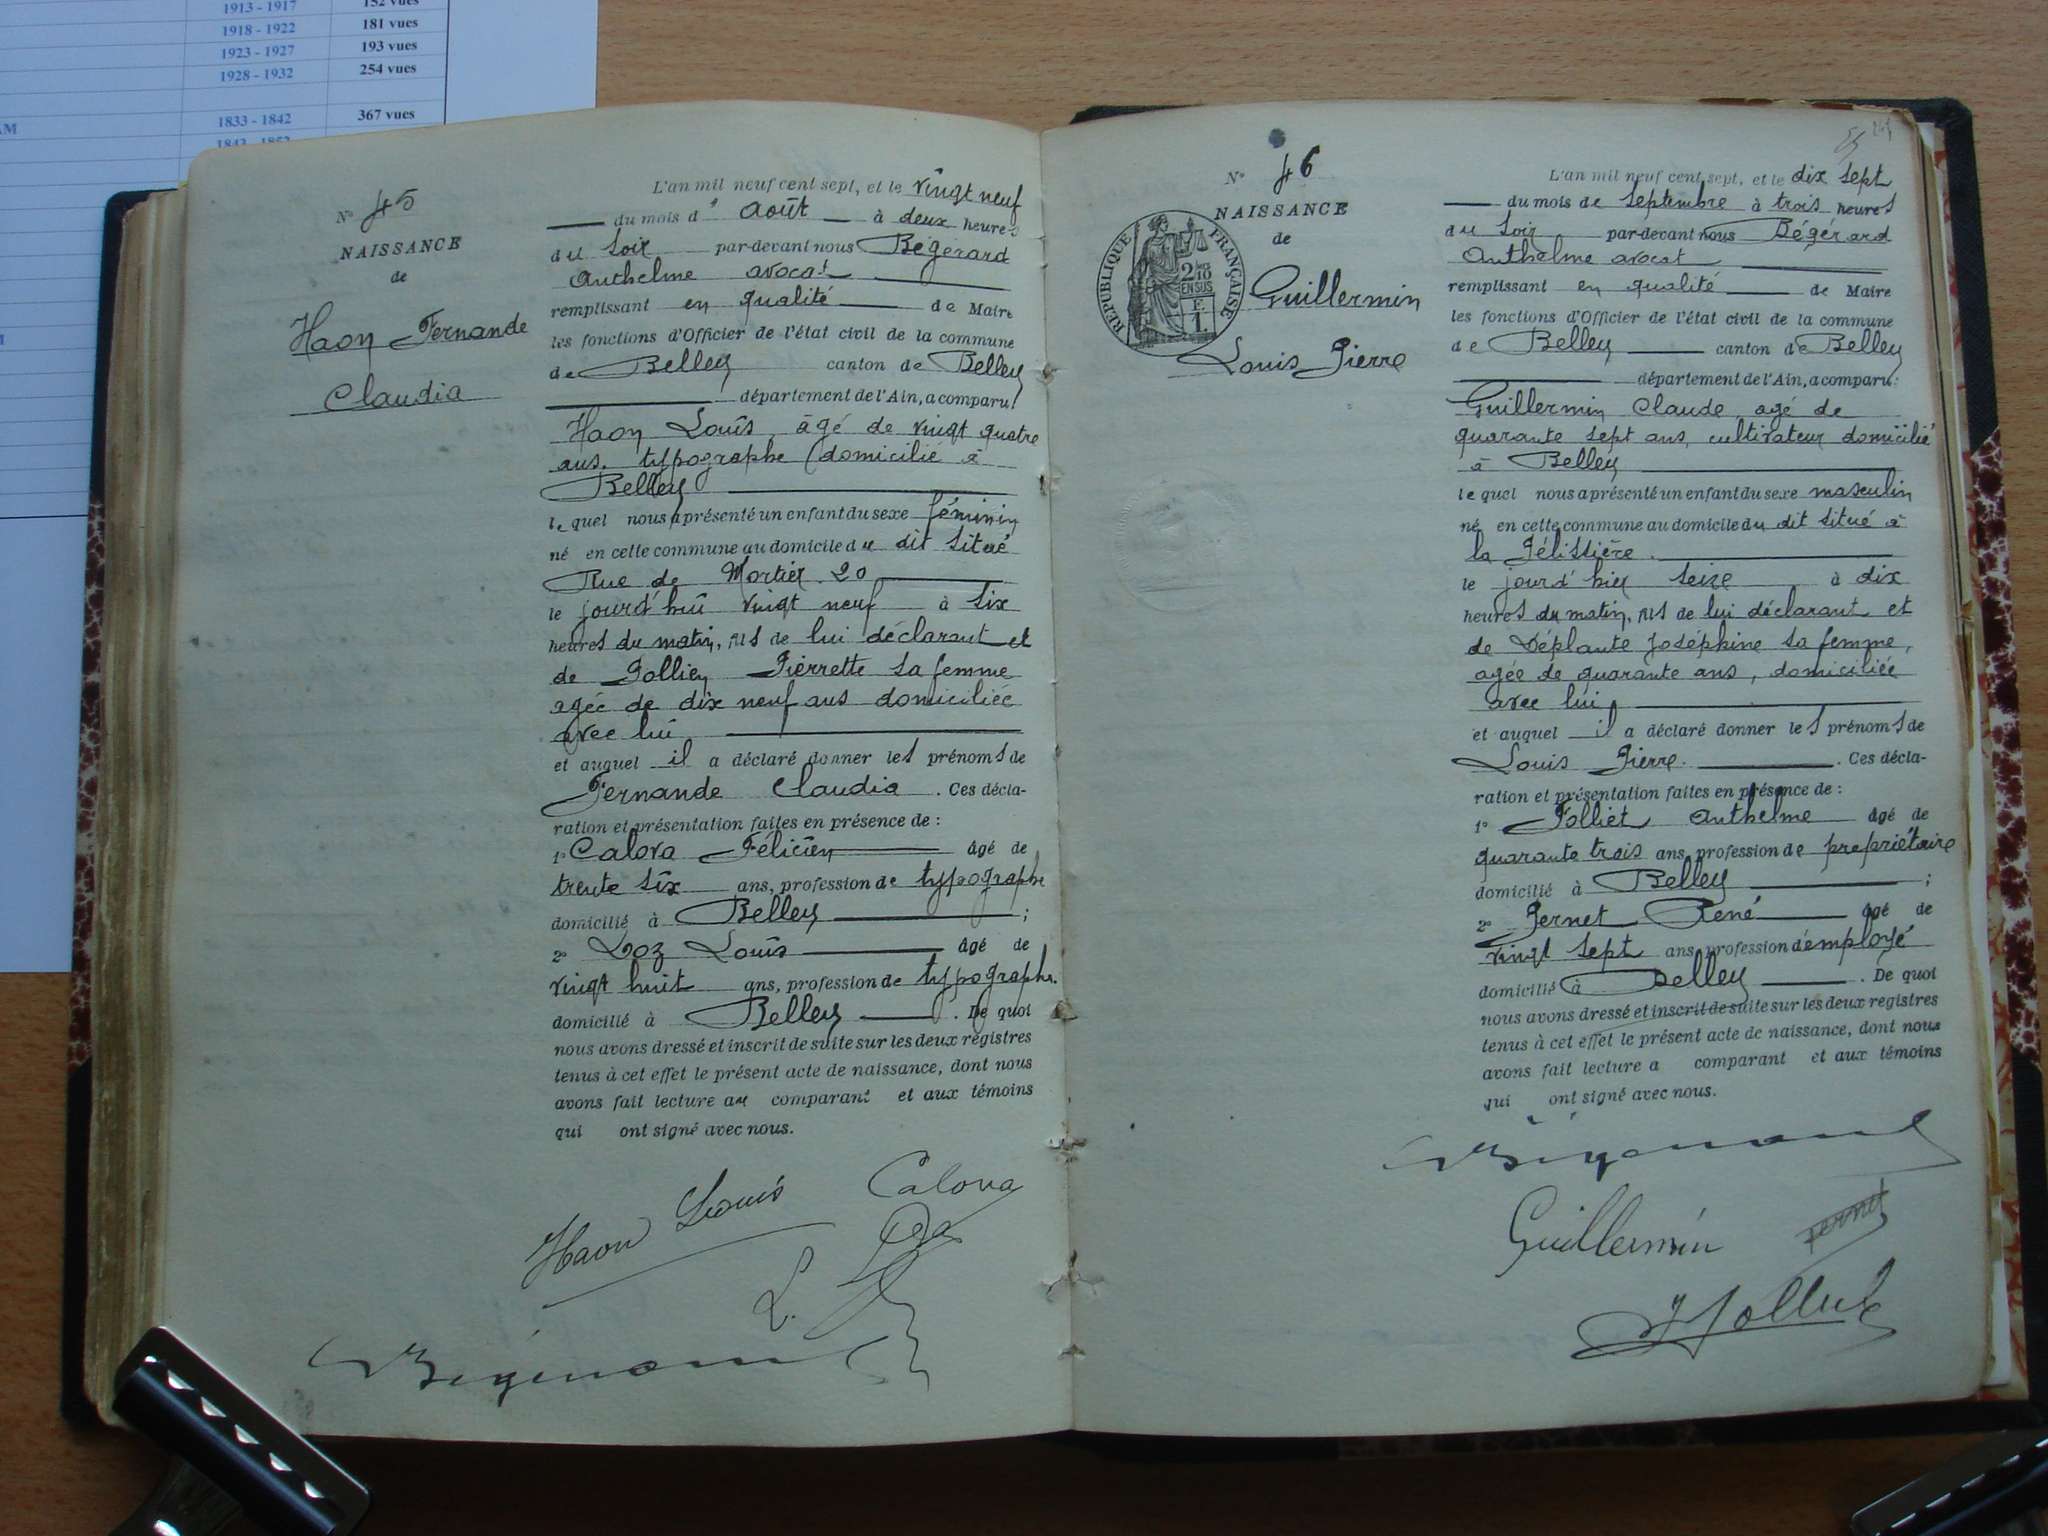 1913 - 1917 152 vues
1918 - 1922 181 vues
1923 - 1927 193 vues
1928 - 1932 254 vues
AM 1833 - 1842 367 vues
1843 - 1852
N° 45
NAISSANCE
de
Haon Fernande
Claudia
L'an mil neuf cent sept, et le vingt neuf
du mois d'août à deux heures
du soir par-devant nous Bégérard
Anthelme avocat
remplissant en qualité de Maire
les fonctions d'Officier de l'état civil de la commune
de Belley canton de Belley
département de l'Ain, a comparu:
Haon Louis, âgé de vingt quatre
ans, typographe domicilié à
Belley
lequel nous a présenté un enfant du sexe féminin
né en cette commune au domicile du dit situé
Rue de Mortier 20
le jourd'hui vingt neuf à six
heures du matin, fils de lui déclarant et
de Pollien Pierrette sa femme
agée de dix neuf ans domiciliée
avec lui
et auquel il a déclaré donner les prénoms de
Fernande Claudia. Ces décla-
ration et présentation faites en présence de :
1° Calova Félicien âgé de
trente six ans, profession de typographe
domicilié à Belley ;
2° Loz Louis âgé de
vingt huit ans, profession de typographe.
domicilié à Belley. De quoi
nous avons dressé et inscrit de suite sur les deux registres
tenus à cet effet le présent acte de naissance, dont nous
avons fait lecture au comparant et aux témoins
qui ont signé avec nous.
Haon Louis Calova
L.
Bégérard
N° 46
NAISSANCE
de
RÉPUBLIQUE FRANÇAISE
2 10 EN SUS
Guillermin
Louis Pierre
241
L'an mil neuf cent sept, et le dix sept
du mois de septembre à trois heures
du soir par-devant nous Bégérard
Anthelme avocat
remplissant en qualité de Maire
les fonctions d'Officier de l'état civil de la commune
de Belley canton de Belley
département de l'Ain, a comparu:
Guillermin Claude, agé de
quarante sept ans, cultivateur domicilié
à Belley
lequel nous a présenté un enfant du sexe masculin
né en cette commune au domicile du dit situé à
la Pélissière.
le jourd'hier seize à dix
heures du matin, fils de lui déclarant et
de Déplante Joséphine sa femme,
agée de quarante ans, domiciliée
avec lui
et auquel il a déclaré donner les prénoms de
Louis Pierre. Ces décla-
ration et présentation faites en présence de :
1° Folliet Anthelme âgé de
quarante trois ans, profession de propriétaire
domicilié à Belley ;
2° Pernet René âgé de
vingt sept ans, profession d'employé
domicilié à Belley. De quoi
nous avons dressé et inscrit de suite sur les deux registres
tenus à cet effet le présent acte de naissance, dont nous
avons fait lecture a comparant et aux témoins
qui ont signé avec nous.
Bégérard
Guillermin Pernet